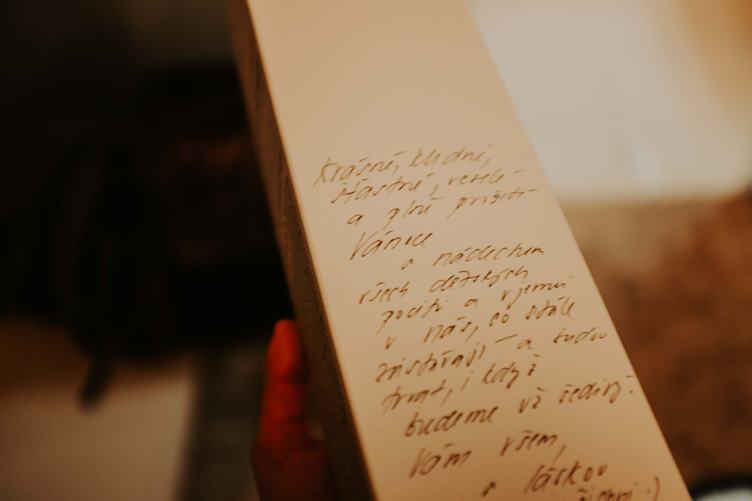 Krásné, klidné,
šťastné, veselé
a plné prožití
Vánoce
s nádechem
všech dětských
pocitů a vjemů
v nás, co stále
zůstávají – a budou
trvat, i když
budeme už šediví.
Vám všem,
s láskou